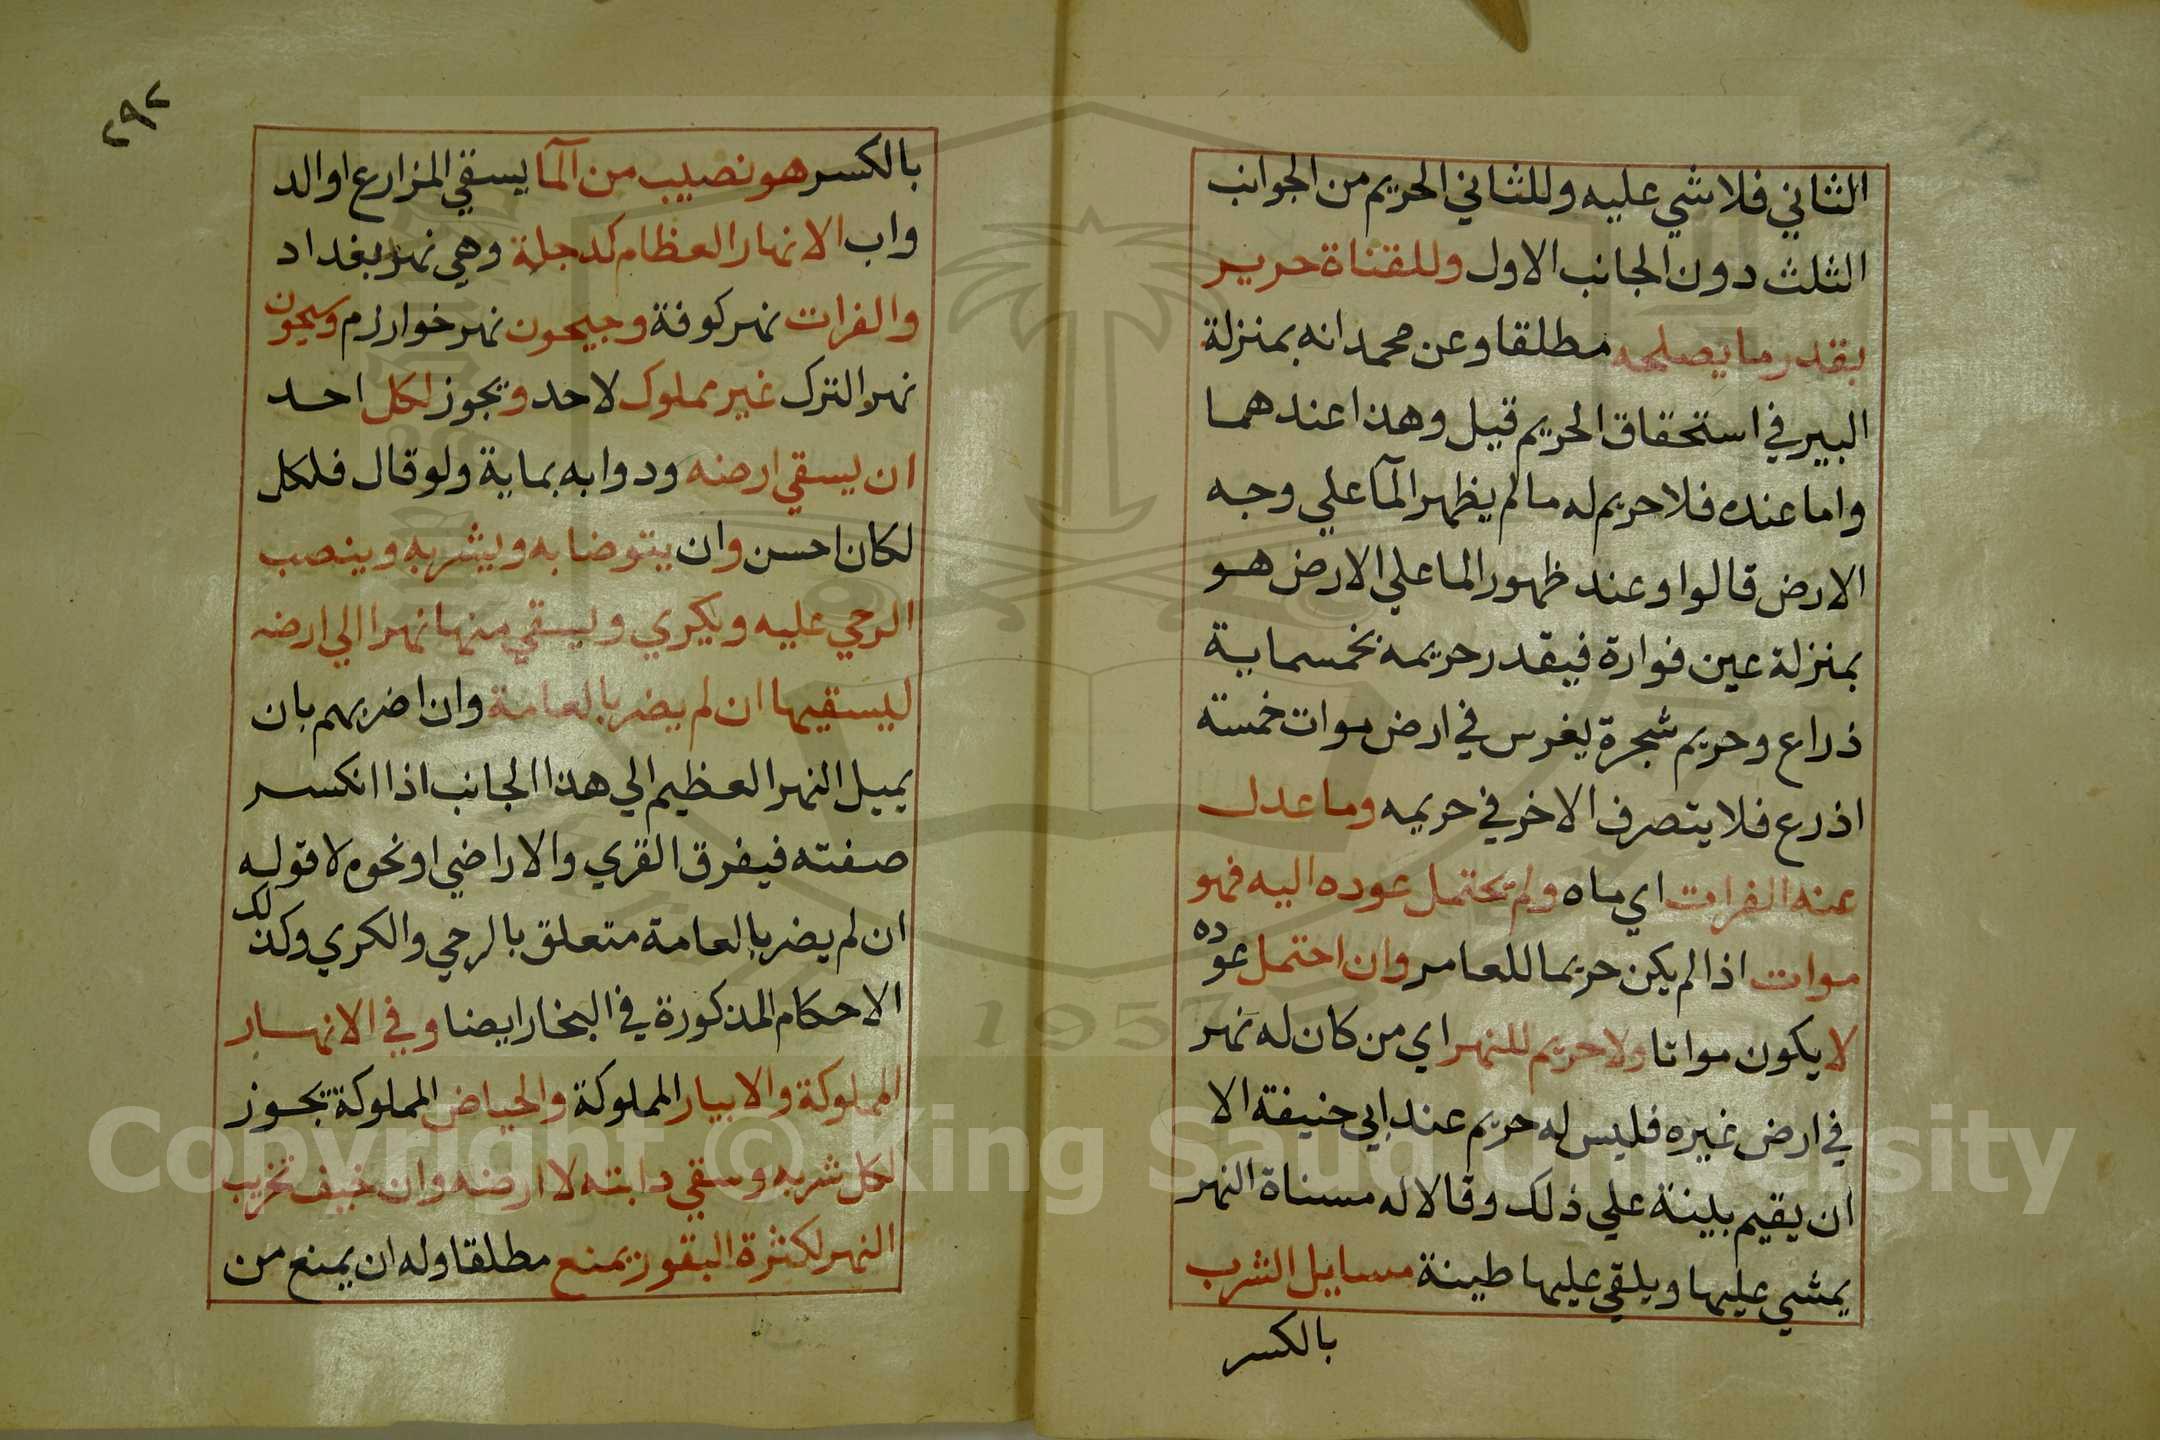 الثاني فلا شي عليه وللثاني الحريم من الجوانب
الثلث دون الجانب الاول وللقناة حريم
بقدر ما يصلحه مطلقا وعن محمد انه بمنزلة
البير في استحقاق الحريم قيل وهذا عندهما
واما عنده فلا حريم له ما لم يظهر المآ علي وجه
الارض قالوا وعند ظهور الما علي الارض هو
بمنزلة عين فوارة فيقدر حريمه بخمسماية
ذراع وحريم شجرة يغرس في ارض موات خمسة
اذرع فلا يتصرف الاخر في حريمه وما عدل
عنه الفرات اي ماه ولم يحتمل عوده اليه فهو
موات اذا لم يكن حريما للعامر وان احتمل عوده
لا يكون مواتا ولا حريم للنهر اي من كان له نهر
في ارض غيره فليس له حريم عند ابي حنيفة الا
ان يقيم بينة علي ذلك وقالا له مسناة النهر
يمشي عليها ويلقي عليها طينة مسايل الشرب
بالكسر
٢٩٢
بالكسر هو نصيب من المآ يسقي المزارع او الد
واب الانهار العظام كدجلة وهي نهر بغداد
والفرات نهر كوفة وجيحون نهر خوارزم وسيحون
نهر الترك غير مملوك لاحد وتجوز لكل احد
ان يسقي ارضه ودوابه بماية ولو قال فلكل
لكان احسن وان يتوضا به ويشربه وينصب
الرحي عليه ويكري وليسقي منها نهرا الي ارضه
ليسقيها ان لم يضر بالعامة وان اضر بهم بان
يميل النهر العظيم الي هذا الجانب اذا انكسر
صفته فيفرق القري والاراضي او نحوه لا قوله
ان لم يضر بالعامة متعلق بالرحي والكري وكذلك
الاحكام المذكورة في البخار ايضا وفي الانهار
المملوكة والابيار المملوكة والحياض المملوكة تجوز
لكل شربه وسقي دابته لا ارضه وان خيف تخريب
النهر لكثرة البقور يمنع مطلقا وله ان يمنع من
Copyright © King Saud University
1957